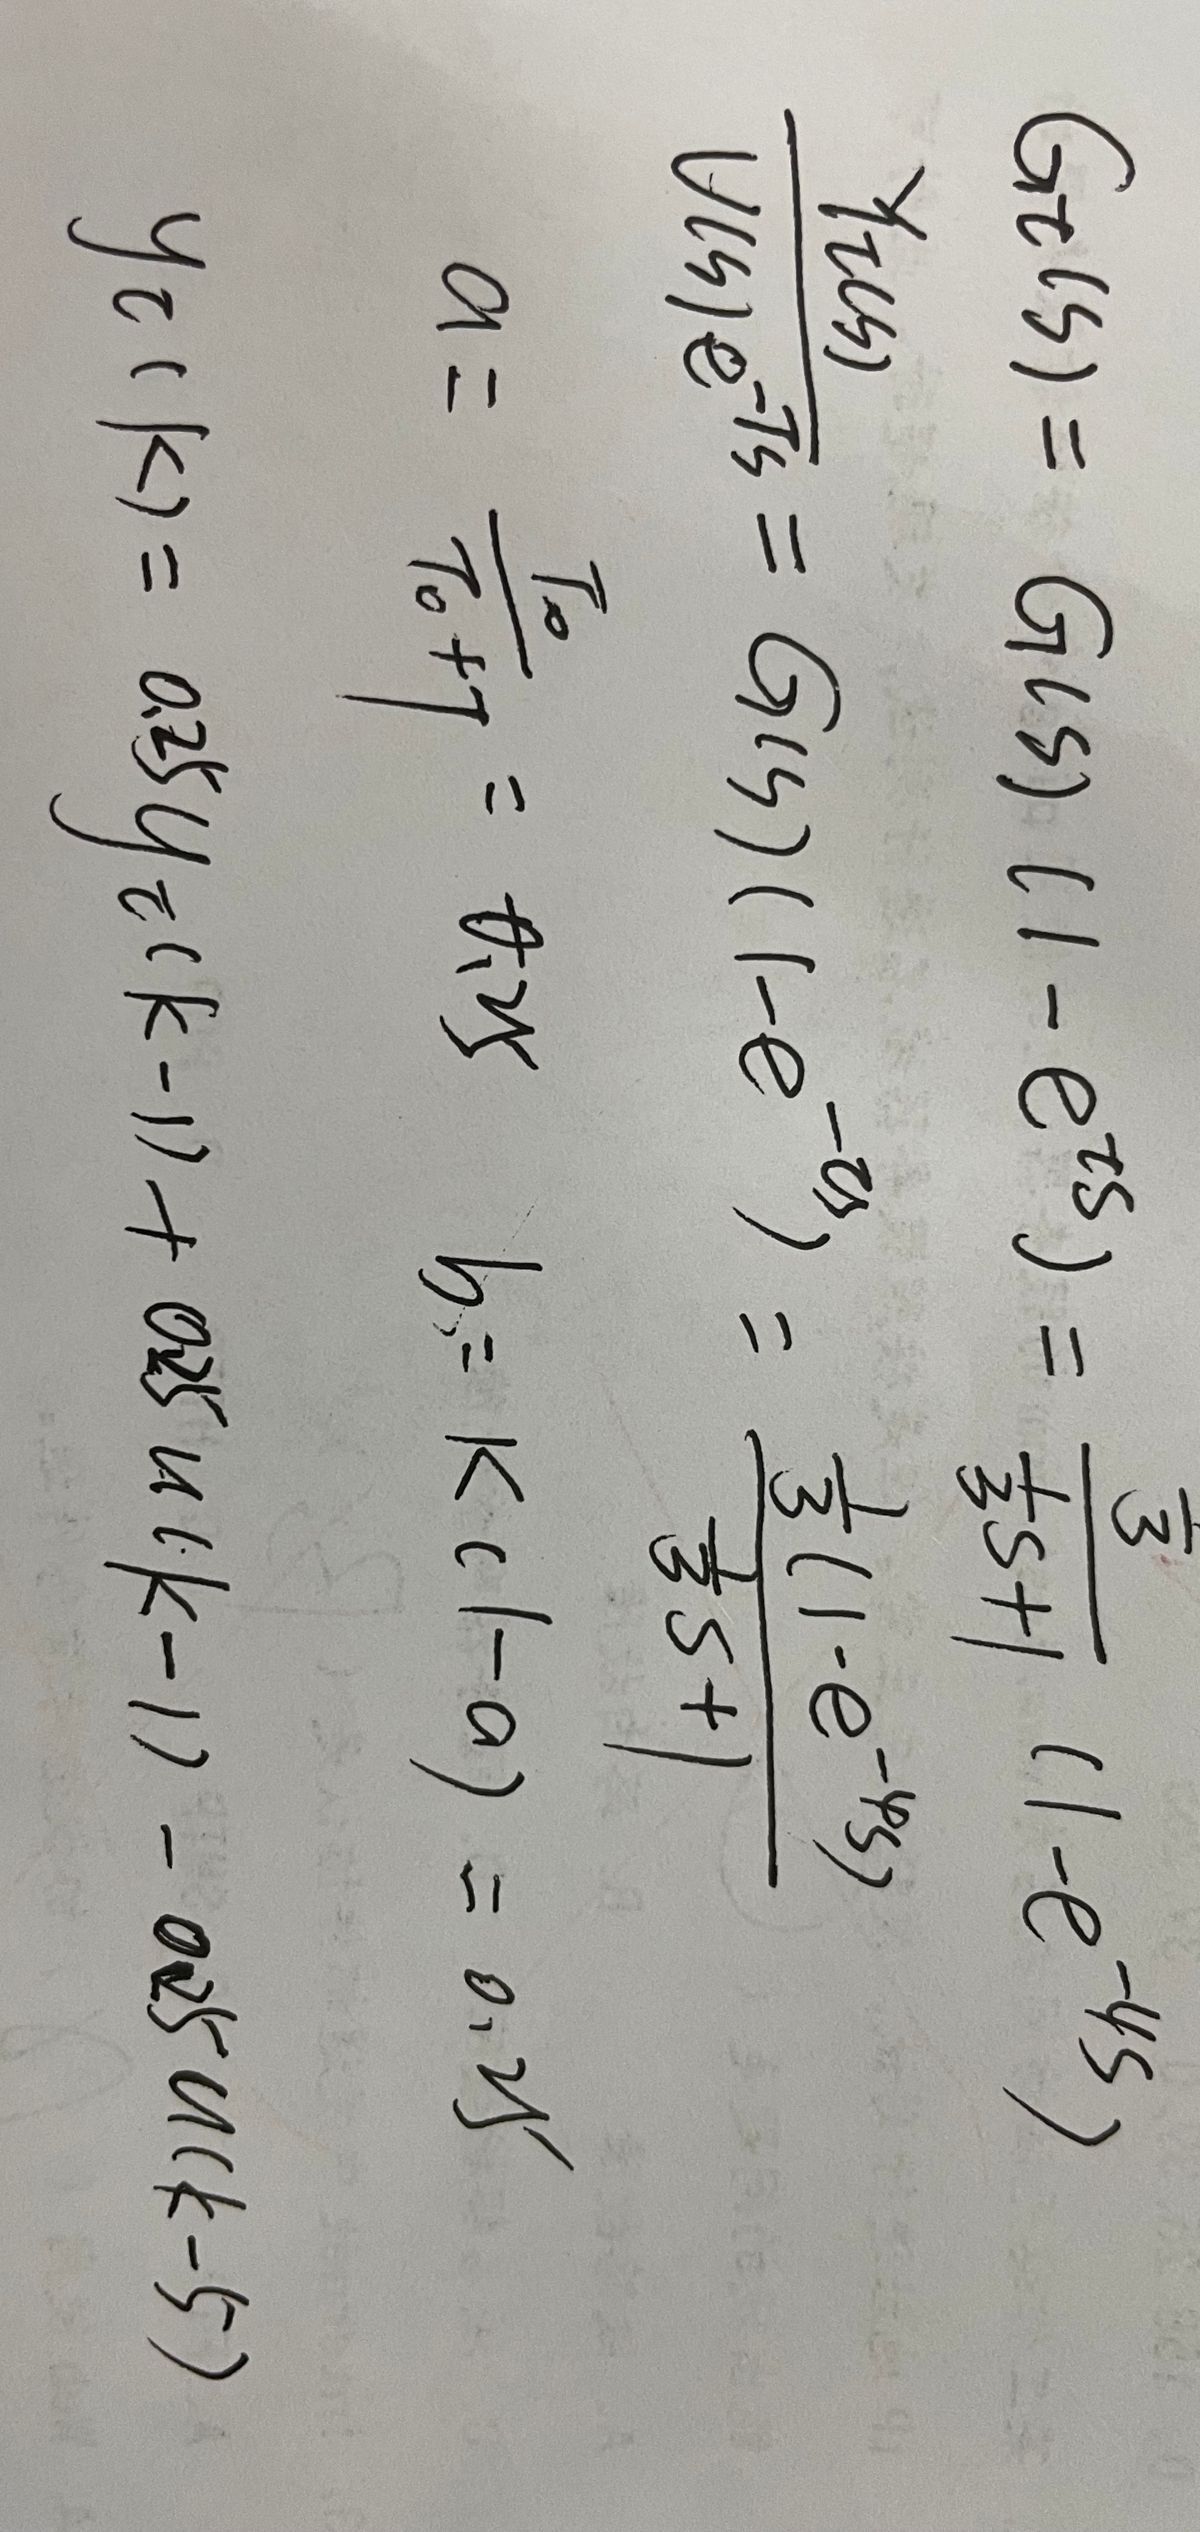 Gτ(s) = G(s) (1 - e^{τs}) = \frac{\frac{1}{3}}{\frac{1}{3}s+1} (1 - e^{-4s})
\frac{Yτ(s)}{U(s)e^{-Ts}} = G(s)(1 - e^{-τs}) = \frac{\frac{1}{3}(1 - e^{-4s})}{\frac{1}{3}s+1}
a = \frac{T_0}{T_0+T} = 0.25 b_1 = K(1-a) = 0.25
yτ(k) = 0.25yτ(k-1) + 0.25u(k-1) - 0.25u(k-5)